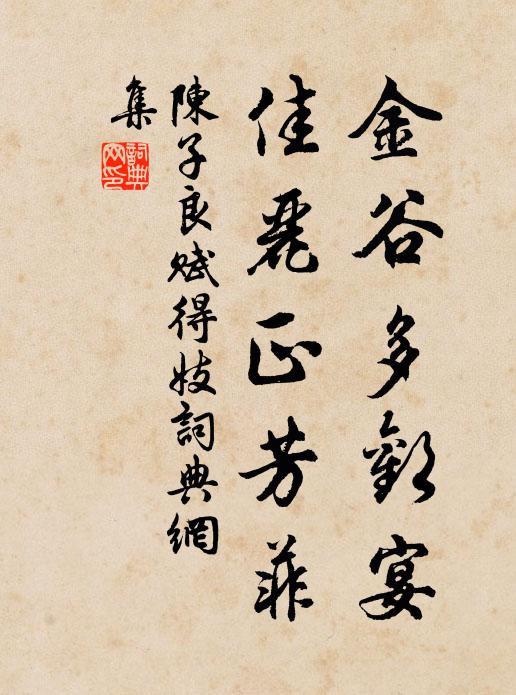 金谷多歡宴
佳麗正芳菲
陳子良賦得妓詞典網
集
詞典網印